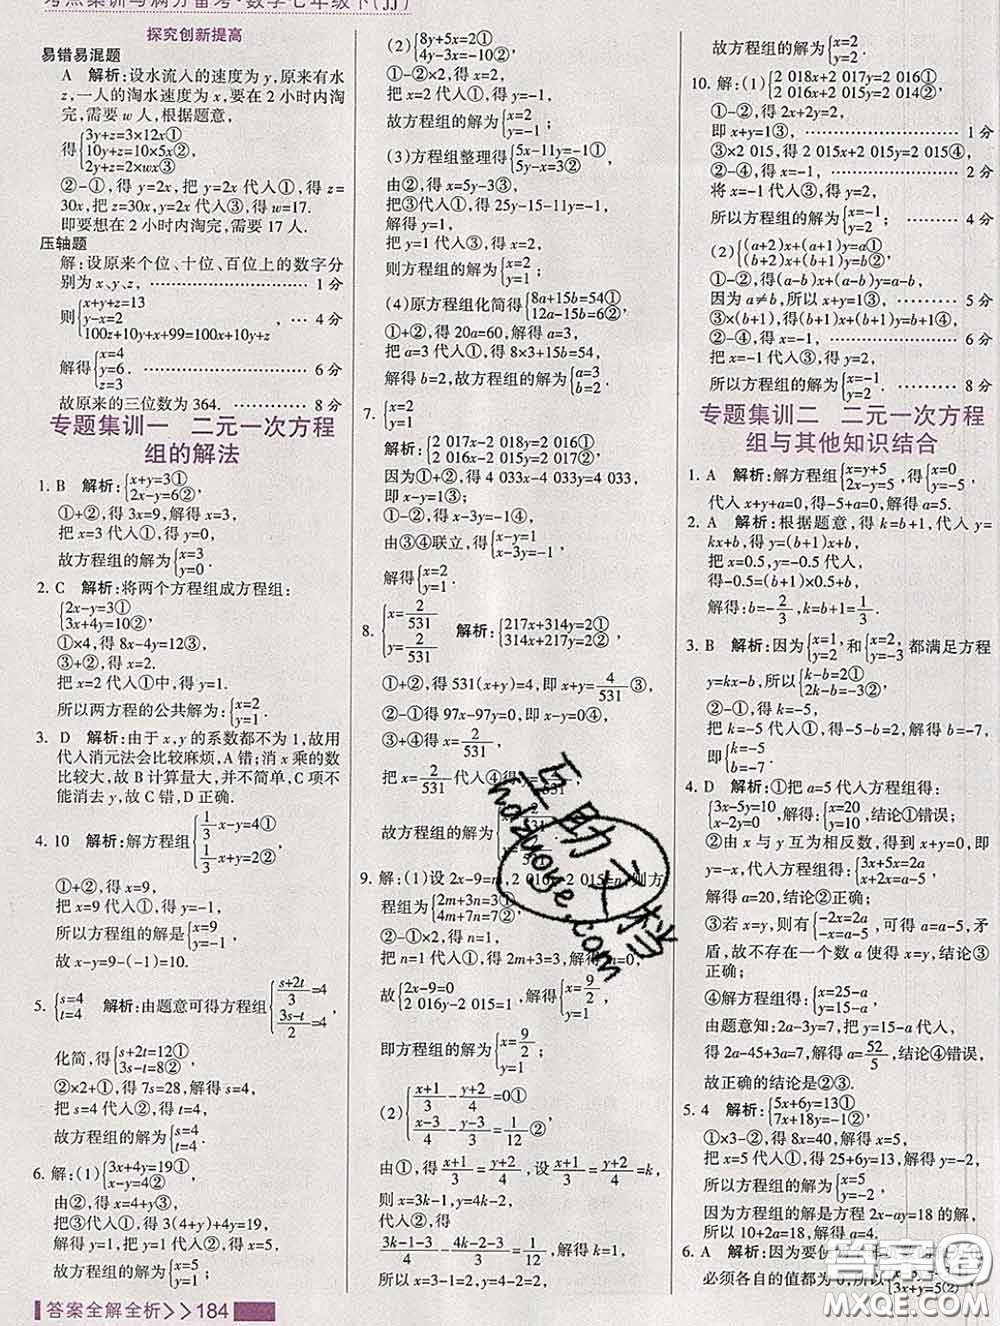 考点集训与满分备考·数学七年级下(JJ)
探究创新提高
易错易混题
A 解析:设水流入的速度为 y,原来有水
z,一人的淘水速度为 x,要在 2 小时内淘
完,需要 w 人,根据题意,
得{3y+z=3×12x①
10y+z=10×5x②,
2y+z=2×wx③
②-①,得 y=2x,把 y=2x 代入①,得 z=
30x,把 z=30x,y=2x 代入③,得 w=17.
即要想在 2 小时内淘完,需要 17 人.
压轴题
解:设原来个位、十位、百位上的数字分
别为 x、y、z, 1 分
则{x+y+z=13
y-x=2
100z+10y+x+99=100x+10y+z
, … 4 分
解得{x=4
y=6.
z=3
6 分
故原来的三位数为 364. 8 分
专题集训一 二元一次方程
组的解法
1. B 解析:{x+y=3①
2x-y=6②,
①+②,得 3x=9,解得 x=3,
把 x=3 代入①,得 y=0,
故方程组的解为{x=3
y=0.
2. C 解析:将两个方程组成方程组:
{2x-y=3①
3x+4y=10②,
①×4,得 8x-4y=12③,
③+②,得 x=2.
把 x=2 代入①中,得 y=1.
所以两方程的公共解为:{x=2
y=1.
3. D 解析:由于 x,y 的系数都不为 1,故用
代入消元法会比较麻烦,A 错;消 x 乘的数
比较大,故 B 计算量大,并不简单,C 项不
能直接消去 y,故 C 错,D 正确.
4. 10 解析:解方程组{1/3x-y=4①
1/3x+y=2②,
①+②,得 x=9,
把 x=9 代入①,得 y=-1,
所以方程组的解是{x=9
y=-1,
故 x-y=9-(-1)=10.
5. {s=4
t=4 解析:由题意可得方程组{(s+2t)/3=4
(3s-t)/2=4,
化简,得{s+2t=12①
3s-t=8②,
②×2+①,得 7s=28,解得 s=4,
把 s=4 代入②,得 t=4,
故方程组的解为{s=4
t=4.
6. 解:(1){3x+4y=19①
x-y=4②,
由②,得 x=4+y③,
把③代入①,得 3(4+y)+4y=19,
解得 y=1,把 y=1 代入③,得 x=5,
故方程组的解为{x=5
y=1;
(2){8y+5x=2①
4y-3x=-10②,
①-②×2,得 x=2,
把 x=2 代入①,得 y=-1,
故方程组的解为{x=2
y=-1.
(3)方程组整理得{5x-11y=-1①
5y-x=3②,
由②,得 x=5y-3③,
把③代入①,得 25y-15-11y=-1,
解得 y=1,
把 y=1 代入③,得 x=2,
则方程组的解为{x=2
y=1;
(4)原方程组化简得{8a+15b=54①
12a-15b=6②,
①+②,得 20a=60,解得 a=3,
把 a=3 代入①,得 8×3+15b=54,
解得 b=2,故方程组的解为{a=3
b=2.
7. {x=2
y=1
解析:{2 017x-2 018y=2 016①
2 016x-2 015y=2 017②,
因为①+②,得 4 033x-4 033y=4 033,
即 x-y=1③,
①-②,得 x-3y=-1④,
由③④联立,得{x-y=1
x-3y=-1,
解得{x=2
y=1.
8. {x=2/531
y=2/531 解析:{217x+314y=2①
314x+217y=2②,
①+②,得 531(x+y)=4,即 x+y=4/531③,
②-①得 97x-97y=0,即 x-y=0④,
③+④得 x=2/531,
把 x=2/531代入④得 y=2/531,
故方程组的解为{x=2/531
y=2/531.
9. 解:(1)设 2x-9=m,2 016y-2 015=n,则方
程组为{2m+3n=3①
4m+7n=7②,
②-①×2,得 n=1,
把 n=1 代入①,得 2m+3=3,解得 m=0,
故{2x-9=0
2 016y-2 015=1,解得{x=9/2,
y=1
即方程组的解为{x=9/2
y=1;
(2){(x+1)/3-(y+2)/4=0①
(x-3)/4-(y-3)/3=1/12②,
由①,得(x+1)/3=(y+2)/4,设(x+1)/3=(y+2)/4=k,
则 x=3k-1,y=4k-2,
代入②,得
(3k-1-3)/4-(4k-2-3)/3=1/12,解得 k=1,
所以 x=3k-1=2,y=4k-2=2,
故方程组的解为{x=2
y=2.
10. 解:(1){2 018x+2 017y=2 016①
2 016x+2 015y=2 014②,
①-②,得 2x+2y=2,
即 x+y=1③, 1 分
③×2 015,得 2 015x+2 015y=2 015④,
②-④,得 x=-1, 2 分
将 x=-1 代入③,得 y=2,
所以方程组的解为{x=-1
y=2; 4 分
(2){(a+2)x+(a+1)y=a①
(b+2)x+(b+1)y=b②,
①-②,得(a-b)x+(a-b)y=a-b,
因为 a≠b,所以 x+y=1③, 5 分
③×(b+1),得(b+1)x+(b+1)y=b+1④,
②-④,得 x=-1, 6 分
把 x=-1 代入③,得 y=2,
所以方程组的解为{x=-1
y=2. 8 分
专题集训二 二元一次方程
组与其他知识结合
1. A 解析:解方程组{x=y+5
2x-y=5,得{x=0
y=-5,
代入 x+y+a=0,得-5+a=0,解得 a=5.
2. A 解析:根据题意,得 k=b+1,代入 y=
kx+b,得 y=(b+1)x+b,
把 x=0.5,y=-0.5 代入,
得-0.5=(b+1)×0.5+b,
解得:b=-2/3,k=b+1=1/3.
3. B 解析:因为{x=1,
y=2和{x=2,
y=-3都满足方程
y=kx-b,所以{k-b=2①
2k-b=-3②,
②-①,得 k=-5,
把 k=-5 代入①,得-5-b=2,解得 b=-7,
即{k=-5
b=-7.
4. D 解析:①把 a=5 代入方程组得:
{3x-5y=10
x-2y=0,解得:{x=20
y=10.结论①错误;
②由 x 与 y 互为相反数,得到 x+y=0,即
y=-x,代入方程组得:{3x+5x=a
x+2x=a-5,
解得 a=20,结论②正确;
③若 x=y,则有{-2x=a
-x=a-5,可得 a=a-5,矛
盾,故不存在一个数 a 使得 x=y,结论③
正确.
④解方程组得:{x=25-a
y=15-a,
由题意知:2a-3y=7,把 y=15-a 代入,
得 2a-45+3a=7,解得 a=52/5,结论④错误,
故正确的结论是②③.
5. 4 解析:{5x+6y=13①
7x+18y=-1②,
①×3-②,得 8x=40,解得 x=5,
把 x=5 代入①,得 25+6y=13,解得 y=-2,
所以方程组的解为{x=5
y=-2,
方程组的解是方程 2x-ay=18 的解,
所以 10+2a=18,所以 a=4.
6. A 解析:因为要使
必须各自的值都为 0,所以
3x+y=5②,
答案全解全析>>184
互助文档
hdzuoye.com
答案圈
MXQE.COM